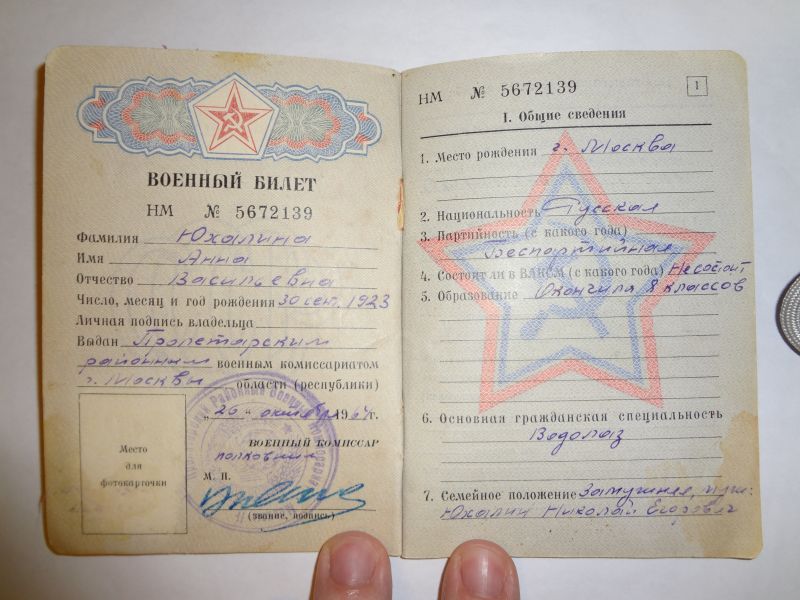 ВОЕННЫЙ БИЛЕТ
НМ № 5672139
Фамилия Юхалина
Имя Анна
Отчество Васильевна
Число, месяц и год рождения 30 сен. 1923
Личная подпись владельца
Выдан Пролетарским
районным военным комиссариатом
г. Москвы области (республики)
„26„ октября 1964 г.
ВОЕННЫЙ КОМИССАР
полковник
Место
для
фотокарточки
М. П.
(звание, подпись)
НМ № 5672139
1
I. Общие сведения
1. Место рождения г. Москва
2. Национальность Русская
3. Партийность (с какого года)
Беспартийная
4. Состоит ли в ВЛКСМ (с какого года) Не состоит
5. Образование Окончила 8 классов
6. Основная гражданская специальность
Водолаз
7. Семейное положение Замужняя, муж:
Юхалин Николай Егорович